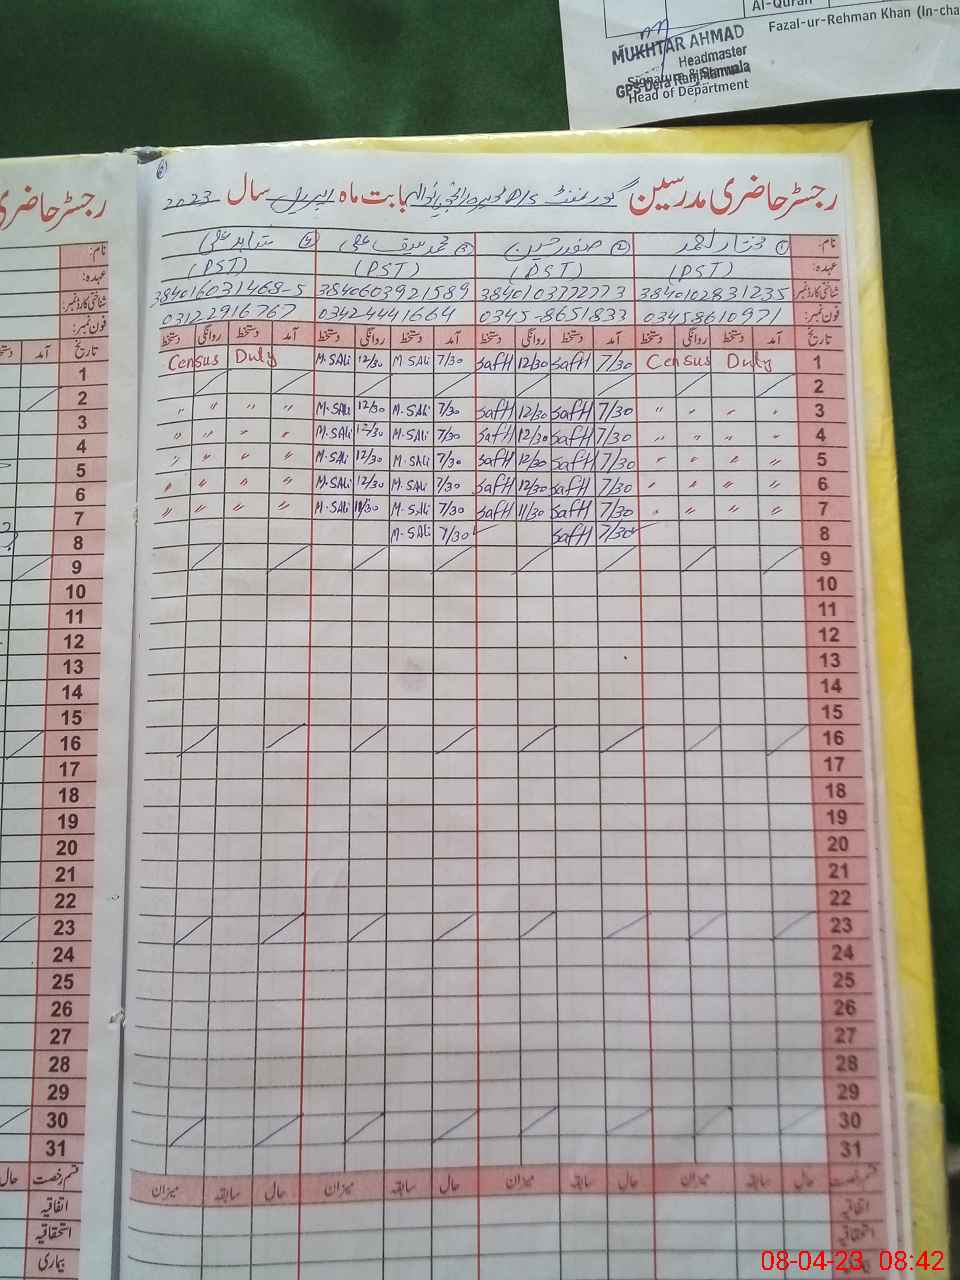 Al-Quran
Fazal-ur-Rehman Khan (In-cha
MUKHTAR AHMAD
Headmaster
Signature & Stamp
GPS Dera Ranjhianwala
Head of Department
رجسٹر حاضری مدرسین گورنمنٹ P/S بابت ماہ اپریل سال 2023
نام: ① مختار احمد ② صفدر حسین ③ محمد صدیق علی ④ شاہد علی
عہدہ: (PST) (PST) (PST) (PST)
شناختی کارڈ نمبر: 3840102831235 3840103772773 3840603921589 384016031468-5
فون نمبر: 03458610971 0345-8651833 03424441664 03122916767
تاریخ آمد دستخط روانگی دستخط آمد دستخط روانگی دستخط آمد دستخط روانگی دستخط آمد دستخط روانگی دستخط
Census Duty M.SAli 12/30 M.SAli 7/30 SafH 12/30 SafH 7/30 Census Duty 1
2
" " " " M.SAli 12/30 M.SAli 7/30 SafH 12/30 SafH 7/30 " " " " 3
" " " " M.SAli 12/30 M.SAli 7/30 SafH 12/30 SafH 7/30 " " " " 4
" " " " M.SAli 12/30 M.SAli 7/30 SafH 12/30 SafH 7/30 " " " " 5
" " " " M.SAli 12/30 M.SAli 7/30 SafH 12/30 SafH 7/30 " " " " 6
" " " " M.SAli 11/30 M.SAli 7/30 SafH 11/30 SafH 7/30 " " " " 7
M.SAli 7/30 SafH 7/30 8
9
10
11
12
13
14
15
16
17
18
19
20
21
22
23
24
25
26
27
28
29
30
31
قسم رخصت حال سابقہ میزان حال سابقہ میزان حال سابقہ میزان حال سابقہ میزان
اتفاقیہ
استحقاقیہ
رجسٹر حاضری
نام:
عہدہ:
شناختی کارڈ نمبر:
فون نمبر:
تاریخ آمد
1
2
3
4
5
6
7
8
9
10
11
12
13
14
15
16
17
18
19
20
21
22
23
24
25
26
27
28
29
30
31
قسم رخصت حال
اتفاقیہ
استحقاقیہ
بیماری
08-04-23 08:42